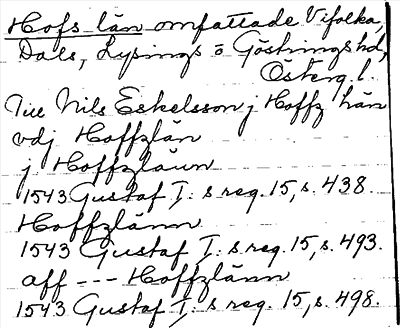 Hofs län omfattade Vifolka,
Dals, Lysings o Göstrings hd,
Österg l.
Till Nils Eskelsson j Hoffz län
vdj Hoffzlän
j Hoffzläun
1543 Gustaf I: s reg. 15, s. 438.
Hoffzlänn
1543 Gustaf I: s reg. 15, s. 493.
aff --- Hoffzlänn
1543 Gustaf I: s reg. 15, s. 498.